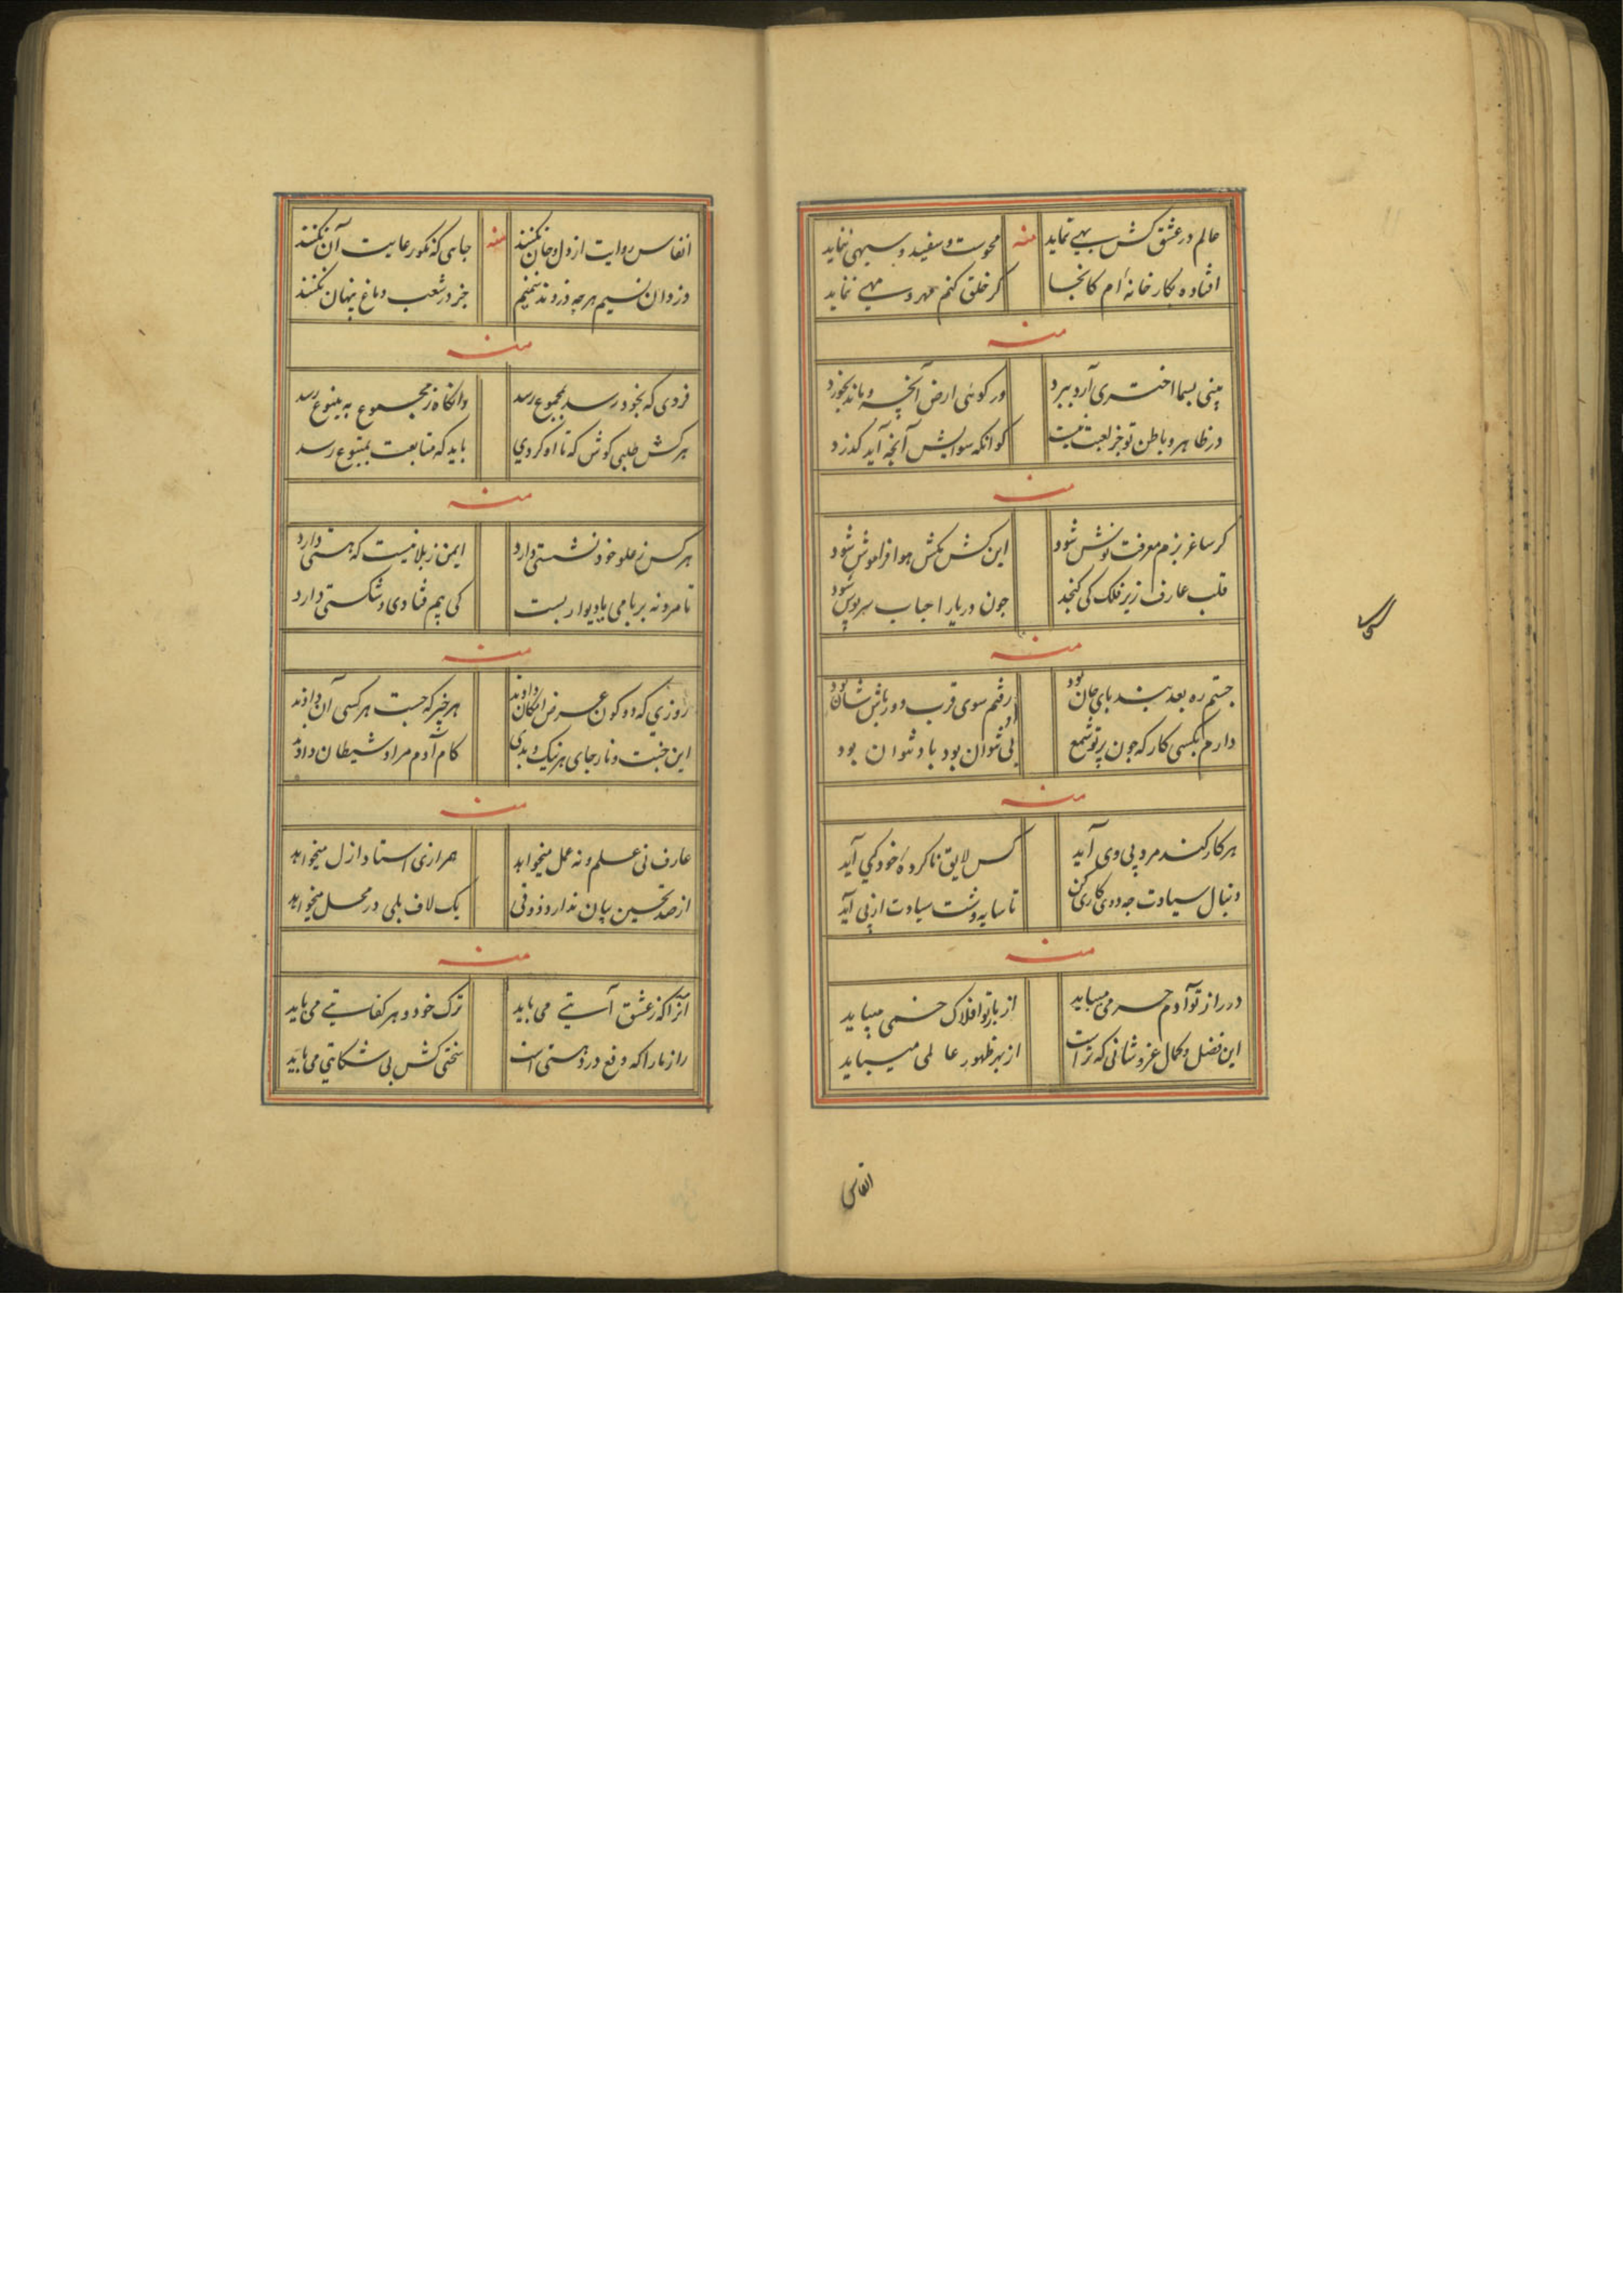 عالم در عشق کش بهی ننماید منه محوست و سفید و سیهی ننماید
افتاده بکارخانه‌ام کانجا کر خلق کنم مهر و مهی ننماید
منه
بینی بسما اختری آرد برد ور کوئی ارض آنچه ماند بخورد
در ظاهر و باطن تو جز لعبت نیست کو انکه سوایش آنچه آید کذرد
منه
کر ساغر بزم معرفت نوش شود این کش مکش هوا فراموش شود
قلب عارف زیر فلک کی کنجد جون دریا را حباب سرپوش شود
منه
جستم ره بعد بند پای جان بود رفتم سوی قرب دورباش شان بود
دارم بکسی کار که جون پرتو شمع نی او نتوان بود با او نتوان بود
منه
هر کار کند مرد پی وی آید کس لایق ناکرده خود کی آید
دنبال سیادت جه دوی کاری کن تا سایه‌وشت سیادت از پی آید
منه
در راز تو آدم حرمی میباید از بار تو افلاک خمی میباید
این فضل و کمال عز و شانی که تراست از بهر ظهور عالمی میباید
انفاس
انفاس روایت از دل و جان نکنند منه جاهی که نکو رعایت آن نکنند
دزدان نسیم هر چه دزدند شمیم جز در شعب دماغ پنهان نکنند
منه
فردی که بخود رسد بمجموع رسد وانکاه ز مجموع به ینبوع رسد
هر کش طلبی کوش که تا او کردی باید که متابعت بمتبوع رسد
منه
هر کس ز علو خود نشستی دارد ایمن ز بلا نیست که هستی دارد
تا مرد نه بر بامی یا دیوار بست کی بیم فتادی و شکستی دارد
منه
روزی که دو کون عرض امکان دادند هر خیر که جست هر کسی آن دادند
این جنت و نار جای هر نیک و بدی کام آدم مراد شیطان دادند
منه
عارف نی علم و نه عمل میخواهد همرازی استاد ازل میخواهد
از صد تحسین بیان ندارد ذوقی یک لاف بلی در محل میخواهد
منه
آنرا که ز عشق آیتی می باید ترک خود و هر کفایتی می باید
راز ما را که دفع درد هستی است سختی کش بی شکایتی می باید